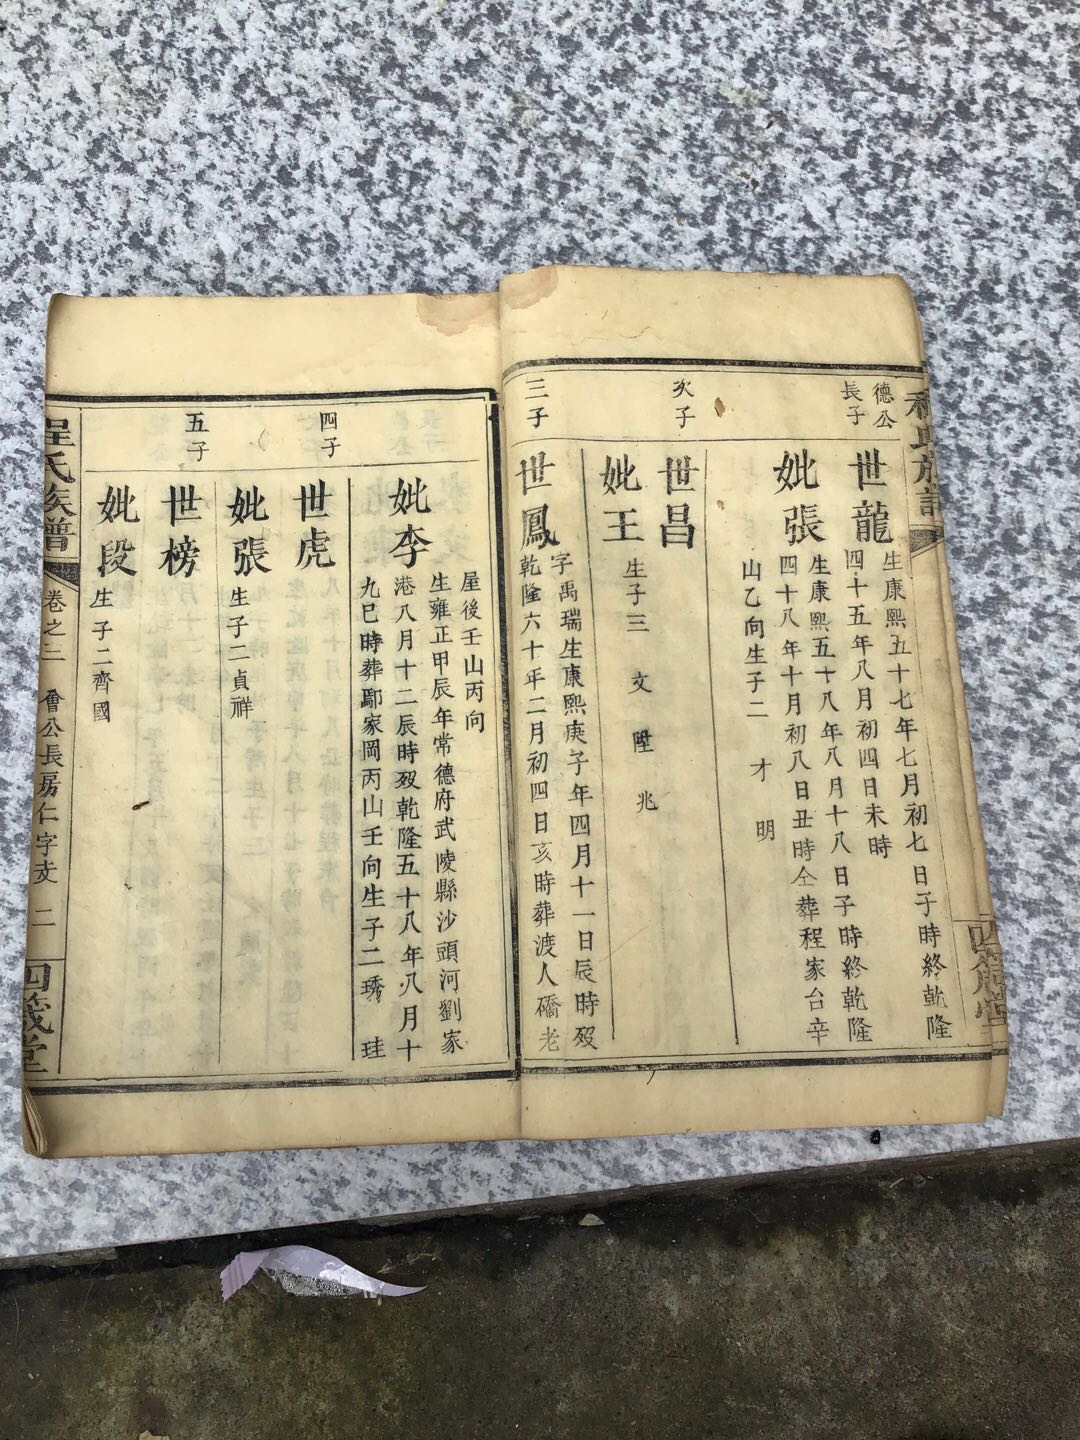 德公
長子
世龍
生康熙五十七年七月初七日子時終乾隆
四十五年八月初四日未時
妣張
生康熙五十八年八月十八日子時終乾隆
四十八年十月初八日丑時仝葬程家台辛
山乙向生子二 才 明
次子
世昌
妣王
生子三 文 陞 兆
三子
世鳳
字禹瑞生康熙庚子年四月十一日辰時歿
乾隆六十年二月初四日亥時葬渡人礄老
屋後壬山丙向
妣李
生雍正甲辰年常德府武陵縣沙頭河劉家
港八月十二辰時歿乾隆五十八年八月十
九巳時葬鄢家岡丙山壬向生子二琇 珪
四子
世虎
妣張
生子二貞祥
五子
世榜
妣段
生子二齊國
程氏族譜
卷之二 會公長房仁字支 二
四箴堂